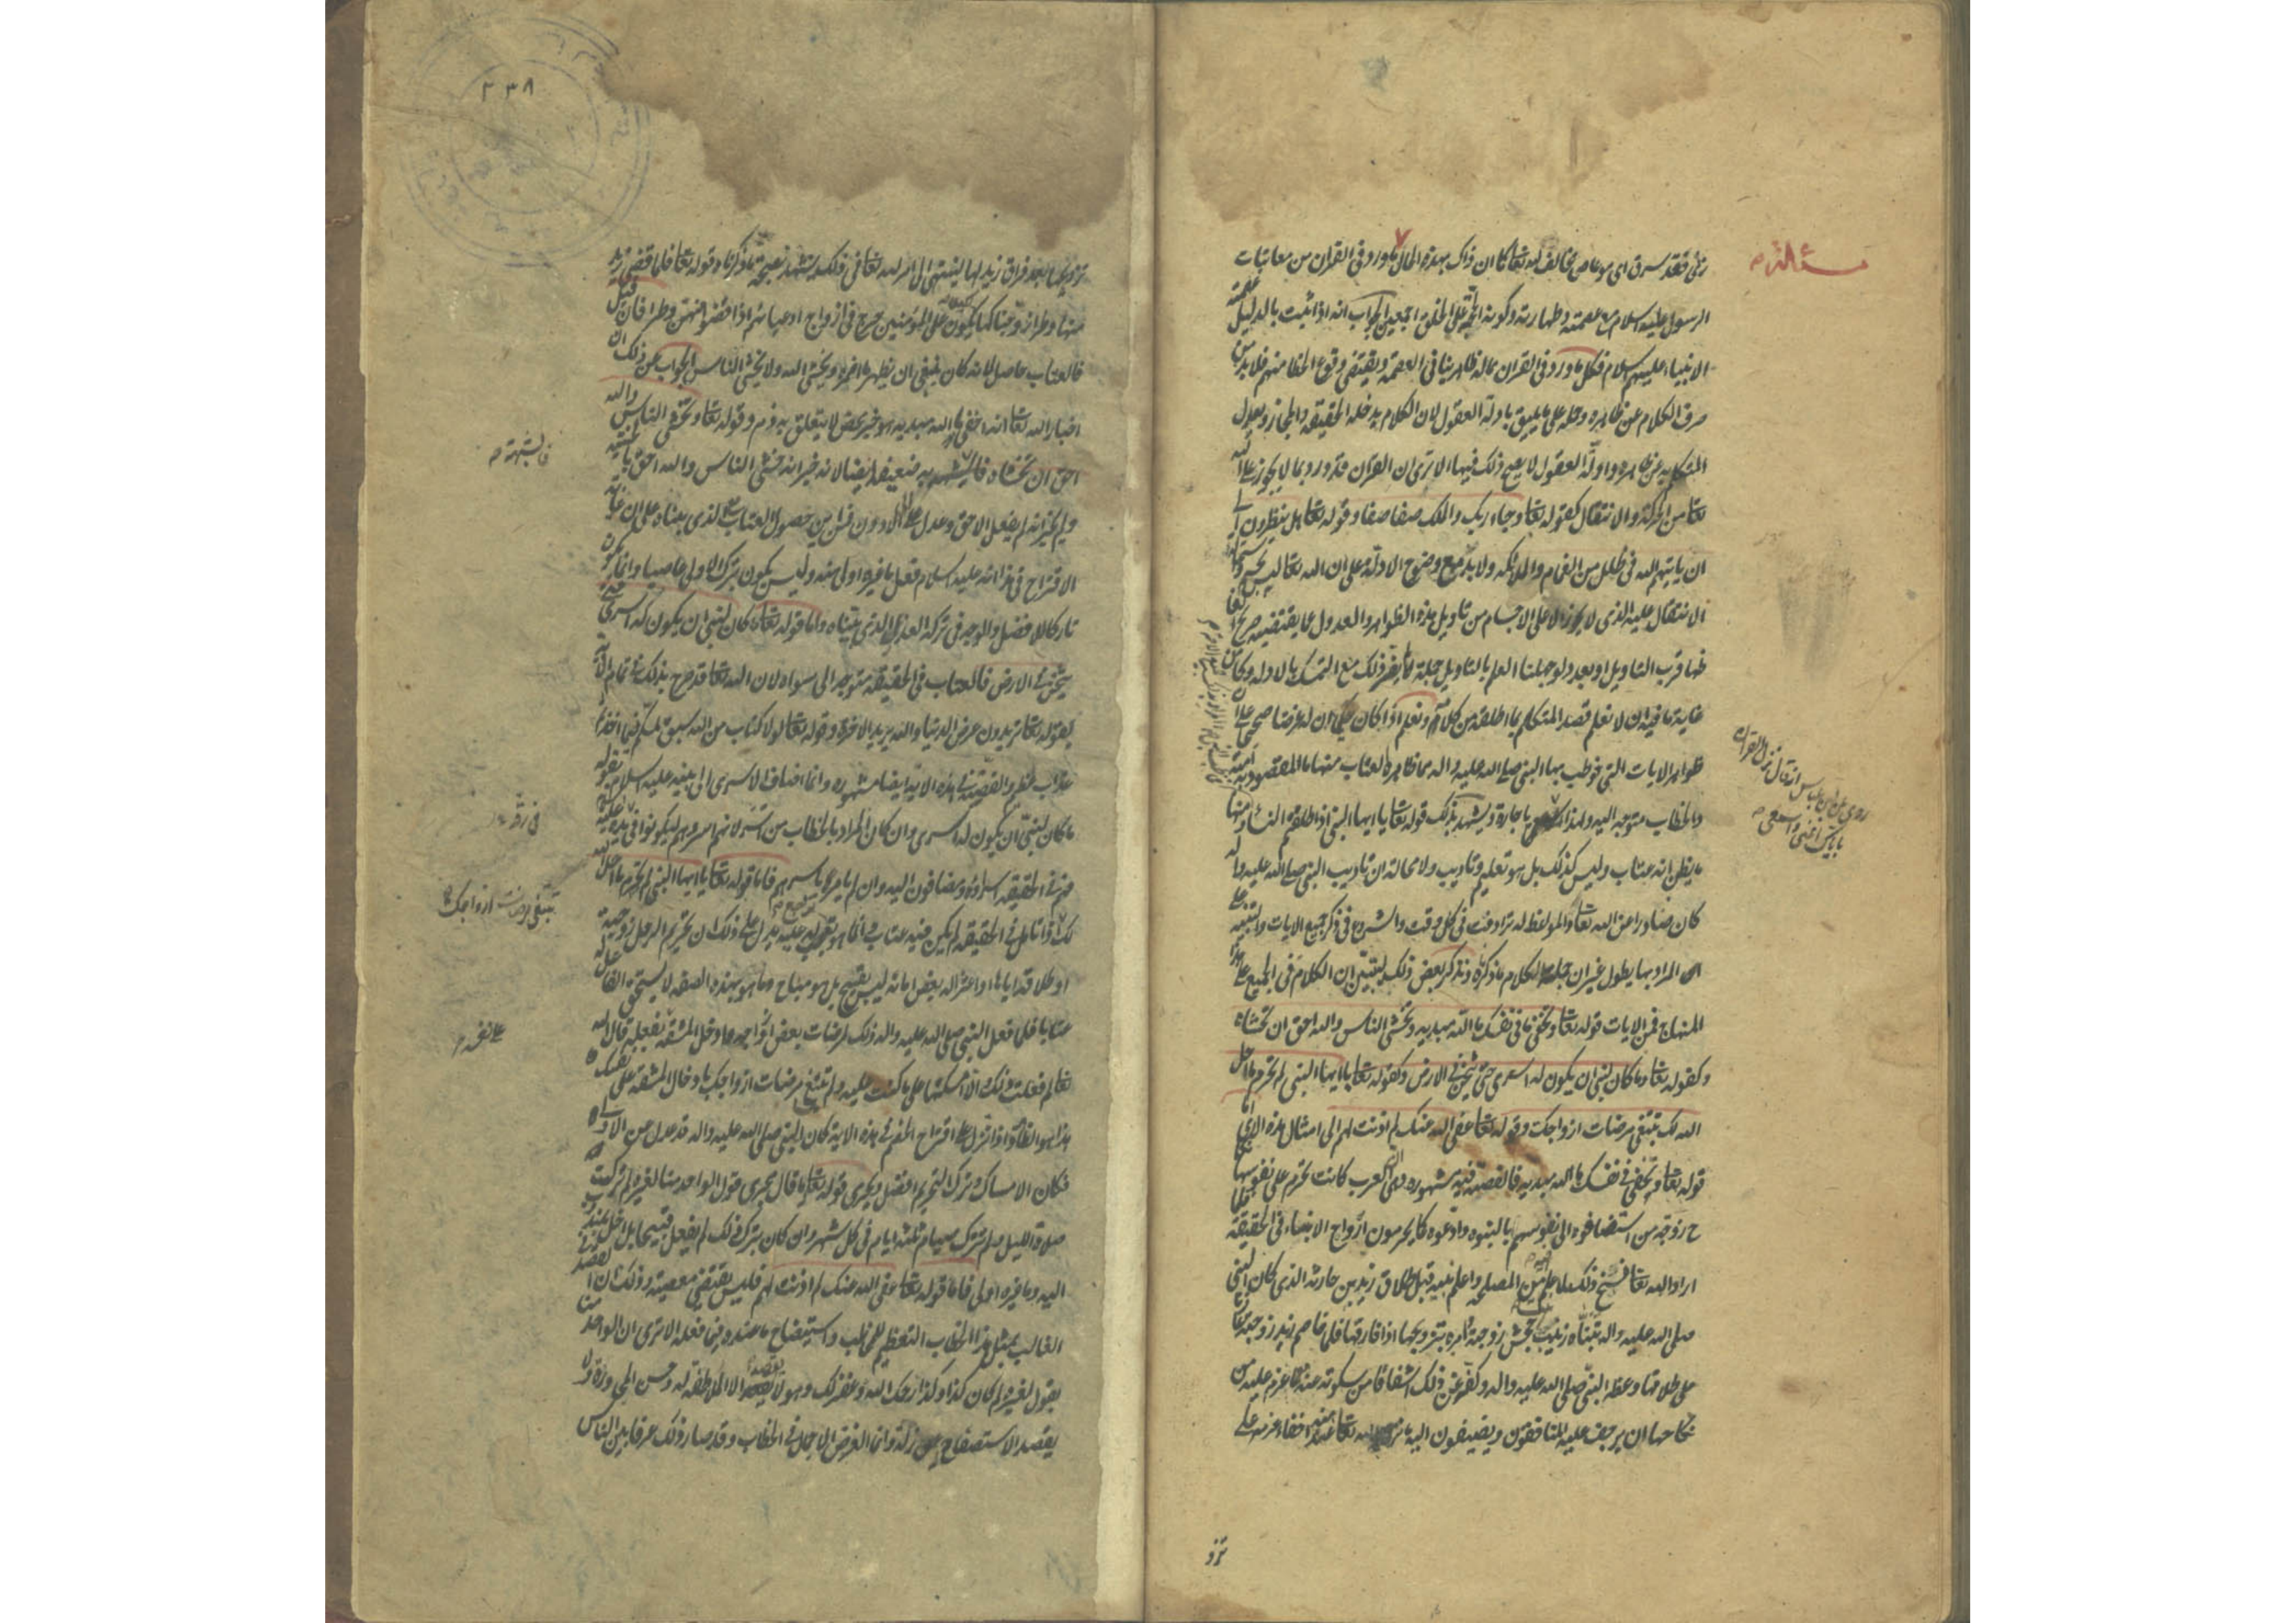 مسئلة
زنى فقد سرق اى هو عاص مخالف لله تعا كما ان ذاك بهذه الحال ما ورد فى القران من معاتبات
الرسول عليه السلام مع عصمته وطهارته وكونه الحجة على الخلق اجمعين الجواب انه اذا ثبت بالدليل عصمة
الانبياء عليهم السلام فكل ما ورد فى القران مما له ظاهر ينافى العصمة ويقتضى وقوع الخطا منهم فلا بد من
صرف الكلام عن ظاهره وحمله على ما يليق بادلة العقول لان الكلام يدخله الحقيقة والمجاز ويعدل
المتكلم به عن ظاهره وادلة العقول لا يصح ذلك فيها الا ترى ان القران قد ورد بما لا يجوز على الله
تعا من الحركة والانتقال كقوله تعا وجاء ربك والملك صفا صفا وقوله تعا هل ينظرون الى
ان ياتيهم الله فى ظلل من الغمام والملائكة ولا بد مع وضوح الادلة على ان الله تعالى ليس بجسم واستحالة
الانتقال عليه الذى لا يجوز الا على الاجسام من تاويل هذه الظواهر والعدول عما يقتضيه صريح الفاظها
قرب التاويل او بعد ولو جهلنا العلم بالتاويل جملة لم يضر ذلك مع التمسك بالادلة وكان
غاية ما فيه ان لا نعلم قصد المتكلم بما اطلقه من كلامه ونعلم اذا كان حكيما ان له غرضا صحيحا
ظواهر الايات التى خوطب بها النبى صلى الله عليه واله مما ظاهره العتاب منها ما المقصود به امته
والخطاب متوجه اليه ويشهد بذلك قوله تعا يا ايها النبى اذا طلقتم النساء ومنها
ما يظن انه عتاب وليس كذلك بل هو تعليم وتاديب ولا محالة ان تاديب النبى صلى الله عليه واله
كان صادرا عن الله تعا والمواعظ له ترادفت فى كل وقت والشروع فى ذكر جميع الايات والتنبيه على
المراد بها يطول غير ان جملة الكلام ما ذكرناه ونذكر بعض ذلك ليتبين ان الكلام فى الجميع على هذا
المنهاج فمن الايات قوله تعا وتخفى فى نفسك ما الله مبديه وتخشى الناس والله احق ان تخشاه
وكقوله تعا وما كان لنبى ان يكون له اسرى حتى يثخن فى الارض وكقوله تعا يا ايها النبى لم تحرم ما احل
الله لك تبتغى مرضات ازواجك وقوله تعا عفى الله عنك لم اذنت لهم الى امثال هذه الاى اما
قوله تعا وتخفى فى نفسك ما الله مبديه فالقصة فيه مشهورة وهى ان العرب كانت تحرم على نفوسها
زوجة من استضافوه الى نفوسهم بالبنوة وادعوه كما يحرمون ازواج الابناء فى الحقيقة فلما
اراد الله تعا نسخ ذلك لما علم فيه من المصلحة واعلم نبيه قبل طلاق زيد بن حارثة الذى كان النبى
صلى الله عليه واله تبناه زينب بنت جحش زوجته امره بتزويجها اذا فارقها فلما خاصم زيد زوجته عازما
على طلاقها وعظه النبى صلى الله عليه واله وكفه عن ذلك اشفاقا من سكوته عنه لما عزم عليه من
نكاحها ان يرجف عليه المنافقون ويضيفون اليه ما نزهه الله تعا عنه اخفاء عزمه على
روى عن ابن عباس انه قال نزل القران
باياك اعنى واسمعى
تزو
٢٣٨
تزويجها بعد فراق زيد لها لينتهى الى امر الله تعا فى ذلك ويشهد بصحة ما ذكرناه قوله تعا فلما قضى زيد
منها وطرا زوجناكها لكيلا يكون على المؤمنين حرج فى ازواج ادعيائهم اذا قضوا منهن وطرا فان قيل
فالعتاب حاصل لانه كان ينبغى ان يظهر ما اضمره ويخشى الله ولا يخشى الناس الجواب عن ذلك ان
اخبار الله تعا انه اخفى ما الله مبديه هو خبر محض لا يتعلق به ذم وقوله تعا وتخشى الناس والله
احق ان تخشاه فالشبهة به ضعيفة ايضا لانه خبر انه خشى الناس والله احق بالخشية
ولم يخبر انه لم يفعل الاحق وعدل الى الادون فمن اين حصول العتاب الذى بيناه على ان غاية
الاقتراح فى هذا انه عليه السلام فعل ما غيره اولى منه وليس يكون بترك الاولى عاصيا وانما يكون
تاركا للافضل والوجه فى تركه العذر الذى بيناه واما قوله تعا ما كان لنبى ان يكون له اسرى حتى
يثخن فى الارض فالعتاب فى الحقيقة متوجه الى سواه لان الله تعا قد صرح بذلك فى تمام الاية
بقوله تعا تريدون عرض الدنيا والله يريد الاخرة وقوله تعا لولا كتاب من الله سبق لمسكم فيما اخذتم
عذاب عظيم والقصة فى هذه الاية ايضا مشهورة وانما اضاف الاسرى الى نبيه عليه السلام بقوله
ما كان لنبى ان يكون له اسرى وان كان المراد بالخطاب من اسر لانهم اسروهم ليكونوا فى يده
فهم فى الحقيقة اسراؤه ومضافون اليه وان لم يامره باسرهم فاما قوله تعا يا ايها النبى لم تحرم ما احل الله
لك فاذا تامل فى الحقيقة لم يكن فيه عتاب وانما هو توجع له يدل على ذلك ان تحريم الرجل زوجته
او طلاقه اياها او اعتزاله بعض امائه ليس بقبيح بل هو مباح وما هو بهذه الصفة لا يستحق الفاعل له
عتابا فلما فعل النبى صلى الله عليه واله ذلك لمرضات بعض ازواجه وادخل المشقة بفعله قال الله
تعا لم فعلت ذلك الا امسكتها على ما كنت عليه ولم تبتغ مرضات ازواجك بادخال المشقة على نفسك
هذا هو الظاهر واذا نزل على اقتراح الخصم فى هذه الاية كان النبى صلى الله عليه واله قد عدل عن الاولى
فكان الامساك وترك التحريم افضل ويجرى قوله تعا ما قال مجرى قول الواحد منا لغيره لم تركت
صلوة الليل ولم تترك صيام ثلثة ايام فى كل شهر وان كان بترك ذلك لم يفعل قبيحا بل اخل بمندوب
اليه وما غيره اولى فاما قوله تعا عفى الله عنك لم اذنت لهم فليس يقتضى معصية وذلك ان
الغالب بمثل هذا الخطاب التعظيم للمخاطب واستيضاح ما عنده فيما فعله الا ترى ان الواحد منا
يقول لغيره لم كان كذا وكذا رحمك الله وغفر لك وهو لا يقصد الا الملاطفة له وحسن المحاورة ولا
يقصد الاستصفاح عن زلة وانما الغرض الاجمال فى الخطاب وقد صار ذلك عرفا بين الناس
فالشبهة
تبتغى مرضات ازواجك
على نفسه